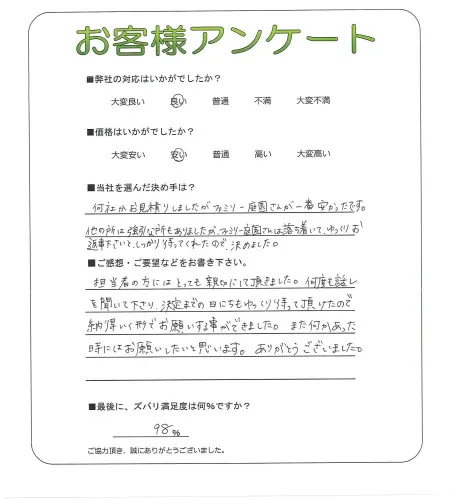 お客様アンケート
■弊社の対応はいかがでしたか？
大変良い 良い 普通 不満 大変不満
■価格はいかがでしたか？
大変安い 安い 普通 高い 大変高い
■当社を選んだ決め手は？
何社かお見積りしましたがファミリー庭園さんが一番安かったです。
他の所は強引な所もありましたが、ファミリー庭園さんは落ち着いて、ゆっくりお
返事下さいと、しっかり待ってくれたので、決めました。
■ご感想・ご要望などをお書き下さい。
担当者の方にはとっても親切にして頂きました。何度も話し
を聞いて下さり、決定までの日にちもゆっくり待って頂けたので
納得いく形でお願いする事ができました。また何かあった
時にはお願いしたいと思います。ありがとうございました。
■最後に、ズバリ満足度は何％ですか？
98％
ご協力頂き、誠にありがとうございました。